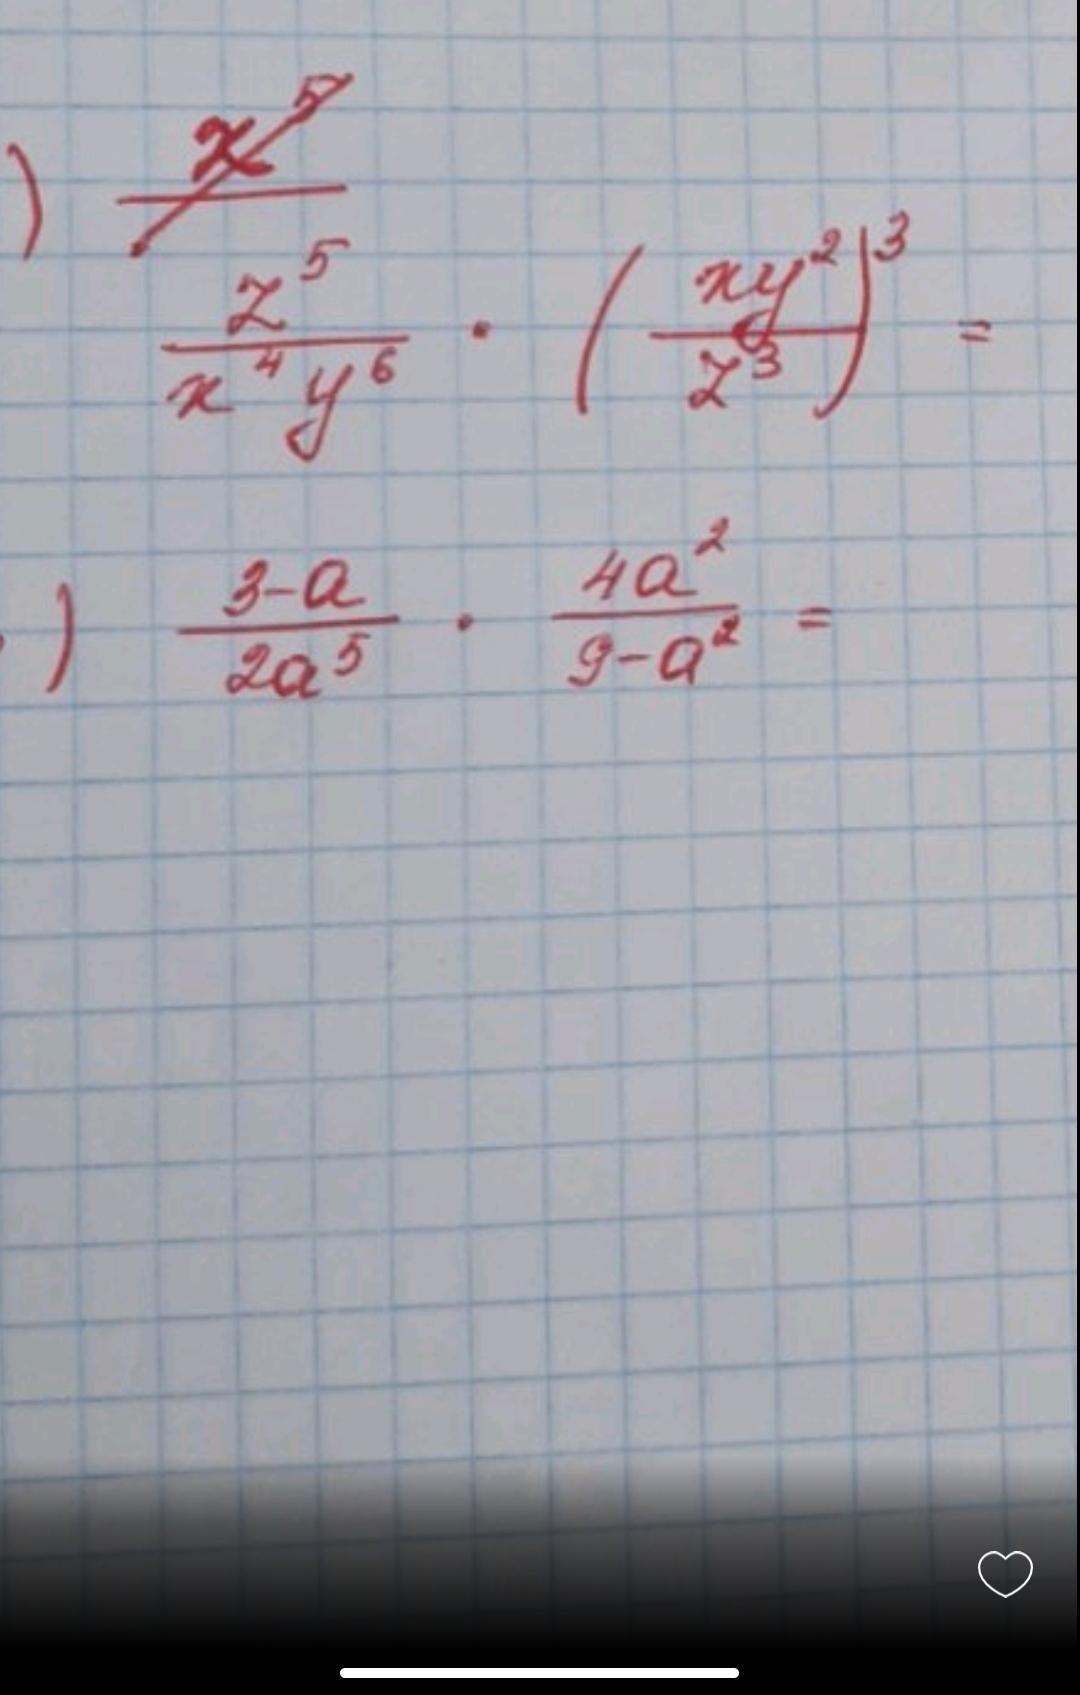 ) x^5
z^5 / x^4 y^6 · ( xy^2 / z^3 )^3 =
) 3-a / 2a^5 · 4a^2 / 9-a^2 =